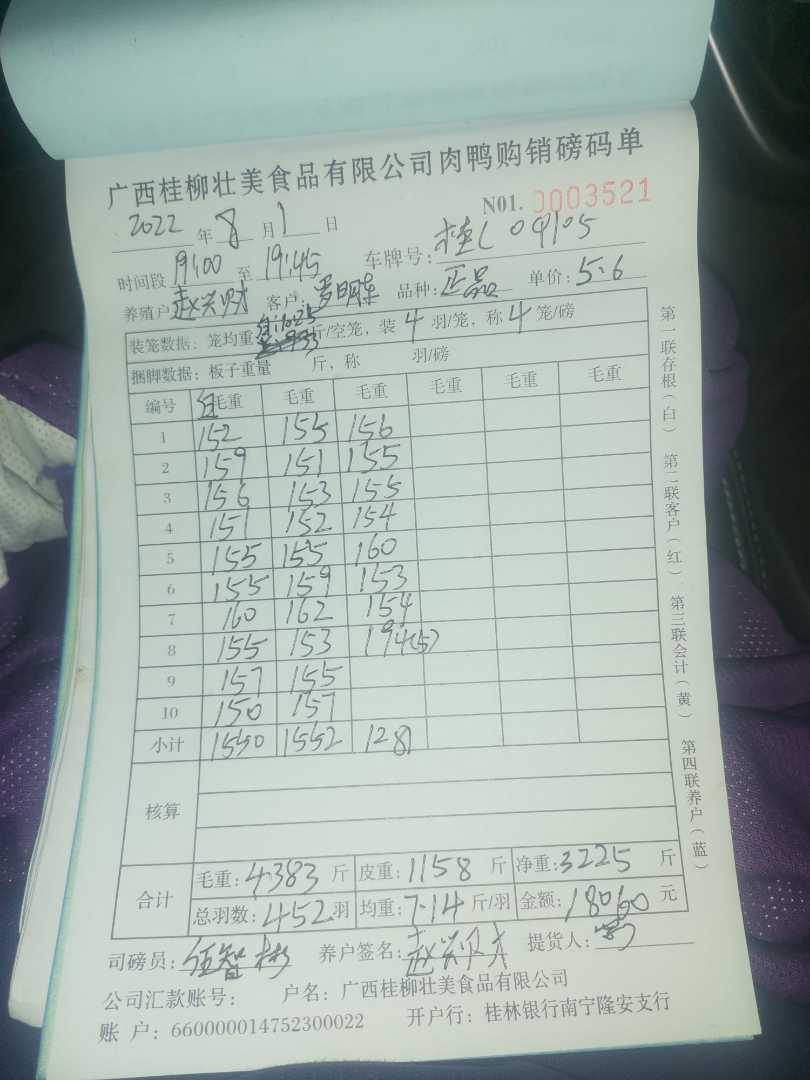 广西桂柳壮美食品有限公司肉鸭购销磅码单
N01. 0003521
2022 年 8 月 1 日
时间段 19:00 至 19:45 车牌号: 桂L 09105
养殖户 赵兴财 客户: 罗明东 品种: 正品 单价: 5.6
装笼数据: 笼均重 斤/空笼, 装 4 羽/笼, 称 4 笼/磅
捆脚数据: 板子重量 斤, 称 羽/磅
编号 毛重 毛重 毛重 毛重 毛重 毛重
1 152 155 156
2 159 151 155
3 156 153 155
4 151 152 154
5 155 155 160
6 155 159 153
7 160 162 154
8 155 153 194(5)
9 157 155
10 150 157
小计 1550 1552 1281
核算
合计
毛重: 4383 斤 皮重: 1158 斤 净重: 3225 斤
总羽数: 452 羽 均重: 7.14 斤/羽 金额: 18060 元
司磅员: 伍智彬 养户签名: 赵兴财 提货人:
公司汇款账号: 户名: 广西桂柳壮美食品有限公司
账 户: 660000014752300022 开户行: 桂林银行南宁隆安支行
第一联存根(白) 第二联客户(红) 第三联会计(黄) 第四联养户(蓝)